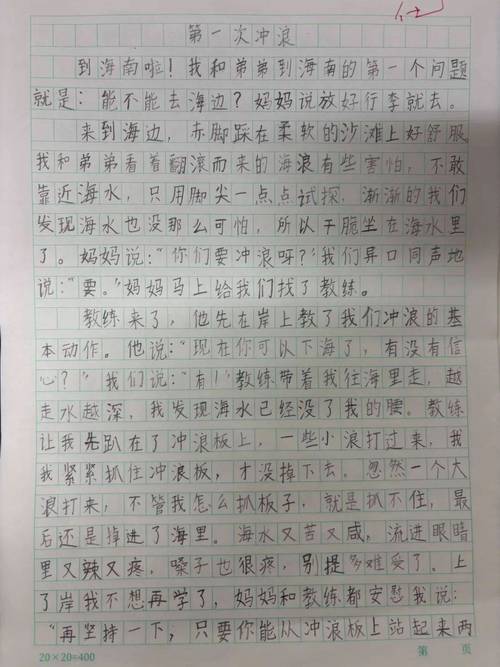 第一次冲浪
到海南啦！我和弟弟到海南的第一个问题
就是：能不能去海边？妈妈说放好行李就去。
来到海边，赤脚踩在柔软的沙滩上好舒服。
我和弟弟看着翻滚而来的海浪有些害怕，不敢
靠近海水，只用脚尖一点点试探，渐渐的我们
发现海水也没那么可怕，所以干脆坐在海水里
了。妈妈说：“你们要冲浪呀？”我们异口同声地
说：“要。”妈妈马上给我们找了教练。
教练来了，他先在岸上教了我们冲浪的基
本动作。他说：“现在你可以下海了，有没有信
心？”我们说：“有！”教练带着我往海里走，越
走水越深，我发现海水已经没了我的腰。教练
让我先趴在了冲浪板上，一些小浪打过来，我
我紧紧抓住冲浪板，才没掉下去。忽然一个大
浪打来，不管我怎么扒板子，就是扒不住，最
后还是掉进了海里。海水又苦又咸，流进眼睛
里又辣又疼，嗓子也很疼，别提多难受了。上
了岸我不想再学了，妈妈和教练都安慰我说：
“再坚持一下；只要你能从冲浪板上站起来两
20×20=400 第 页